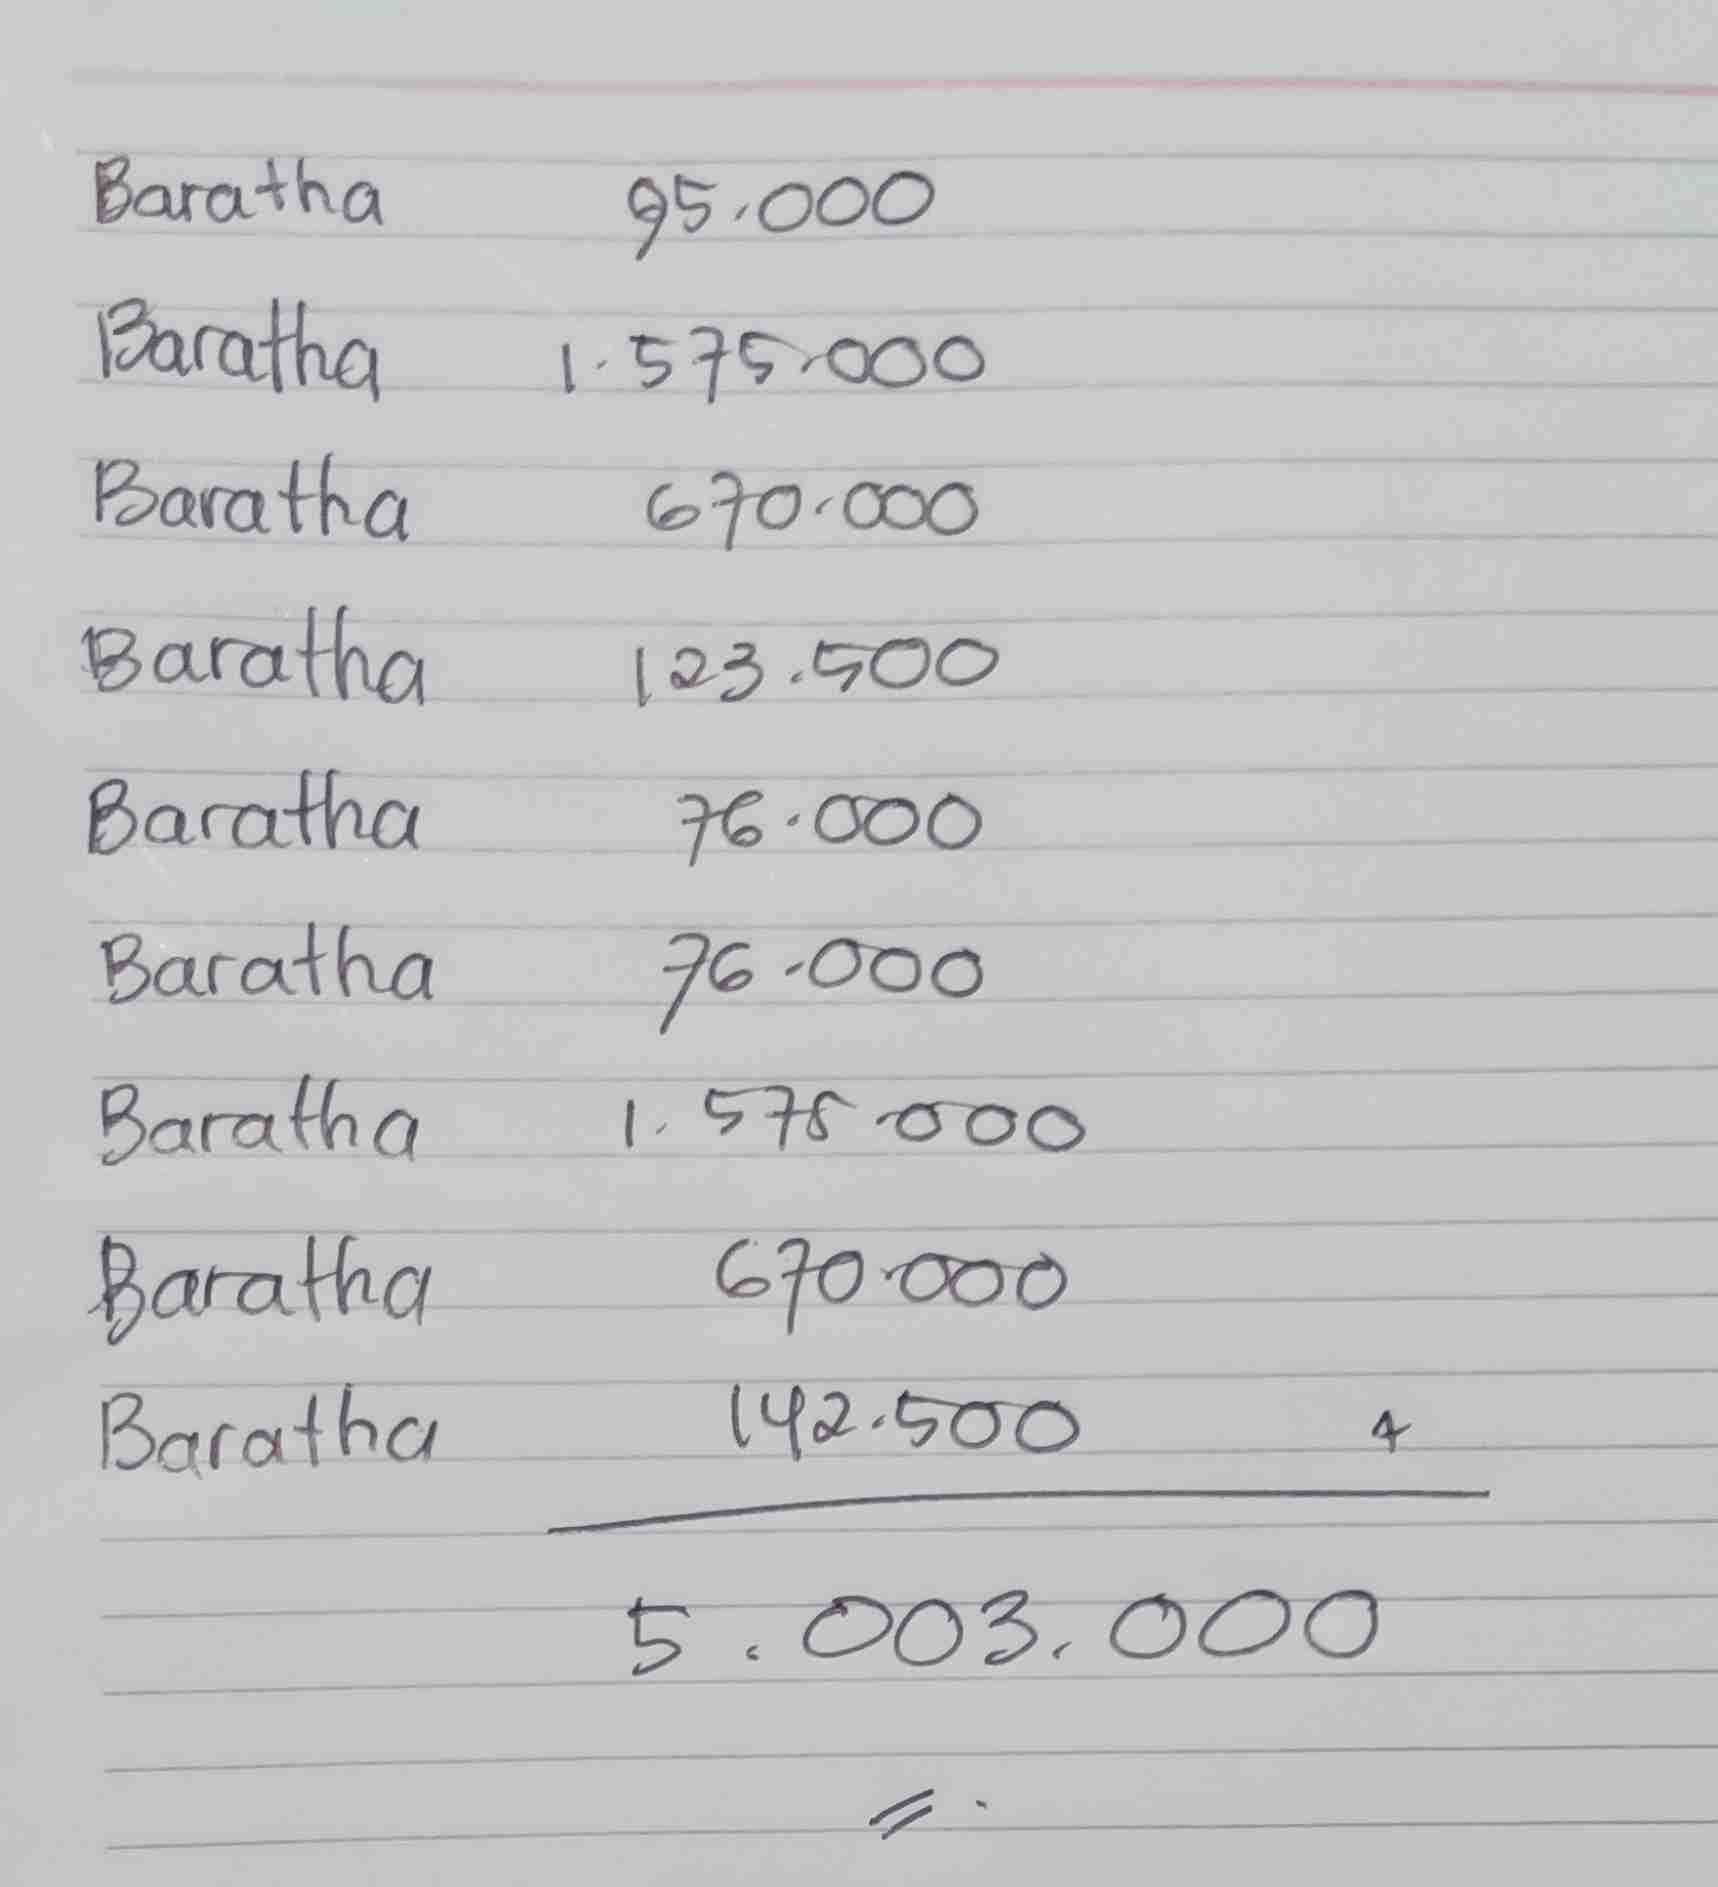 Baratha 95.000
Baratha 1.575.000
Baratha 670.000
Baratha 123.500
Baratha 76.000
Baratha 76.000
Baratha 1.575.000
Baratha 670.000
Baratha 142.500 +
5.003.000
=.